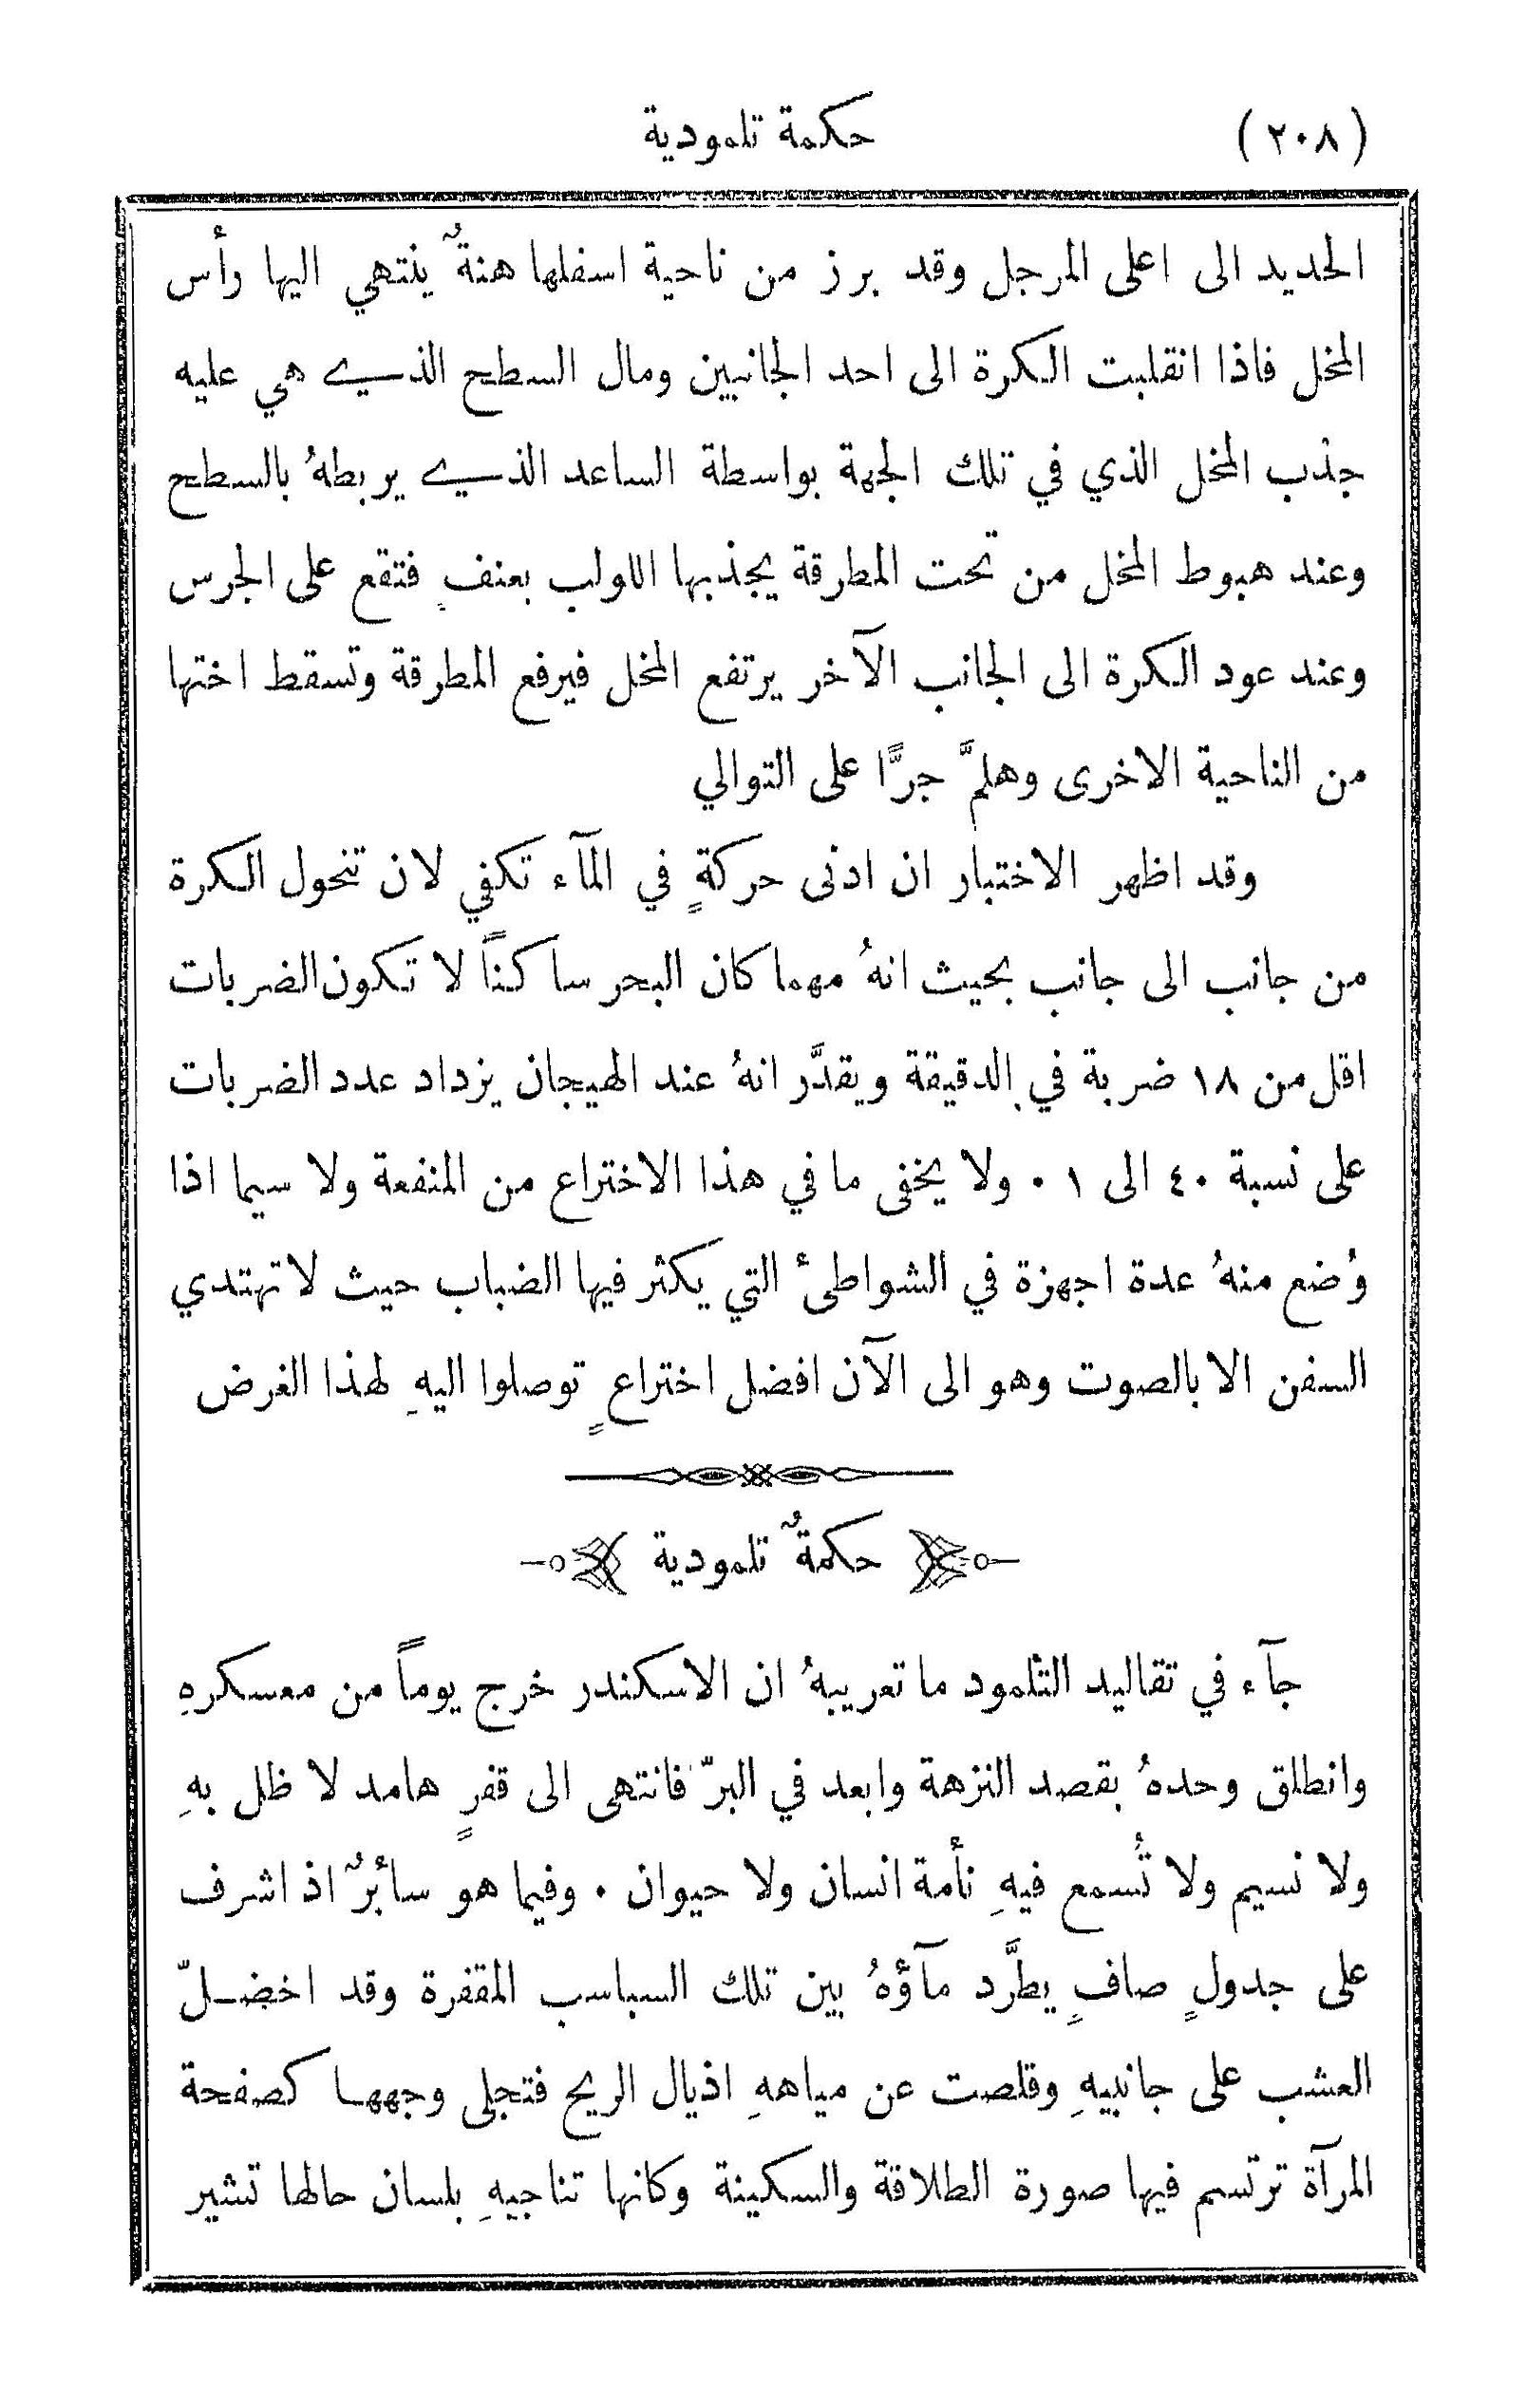 (٢٠٨) حكمة تلمودية
الحديد الى اعلى المرجل وقد برز من ناحية اسفلها هنةٌ ينتهي اليها رأس
المخل فاذا انقلبت الكرة الى احد الجانبين ومال السطح الذي هي عليه
جذب المخل الذي في تلك الجهة بواسطة الساعد الذي يربطهُ بالسطح
وعند هبوط المخل من تحت المطرقة يجذبها اللولب بعنفٍ فتقع على الجرس
وعند عود الكرة الى الجانب الآخر يرتفع المخل فيرفع المطرقة وتسقط اختها
من الناحية الاخرى وهلمَّ جرًّا على التوالي
وقد اظهر الاختبار ان ادنى حركةٍ في المآء تكفي لان تتحول الكرة
من جانب الى جانب بحيث انهُ مهما كان البحر ساكناً لا تكون الضربات
اقل من ١٨ ضربة في الدقيقة ويقدَّر انهُ عند الهيجان يزداد عدد الضربات
على نسبة ٤٠ الى ١ ٠ ولا يخفى ما في هذا الاختراع من المنفعة ولا سيما اذا
وُضع منهُ عدة اجهزة في الشواطئ التي يكثر فيها الضباب حيث لا تهتدي
السفن الا بالصوت وهو الى الآن افضل اختراعٍ توصلوا اليهِ لهذا الغرض
حكمةٌ تلمودية
جآء في تقاليد التلمود ما تعريبهُ ان الاسكندر خرج يوماً من معسكرهِ
وانطلق وحدهُ بقصد النزهة وابعد في البرّ فانتهى الى قفرٍ هامد لا ظل بهِ
ولا نسيم ولا تُسمع فيهِ نأمة انسان ولا حيوان ٠ وفيما هو سائرٌ اذ اشرف
على جدولٍ صافٍ يطَّرد مآؤهُ بين تلك السباسب المقفرة وقد اخضلّ
العشب على جانبيهِ وقلصت عن مياههِ اذيال الريح فتجلى وجهها كصفحة
المرآة ترتسم فيها صورة الطلاقة والسكينة وكانها تناجيهِ بلسان حالها تشير